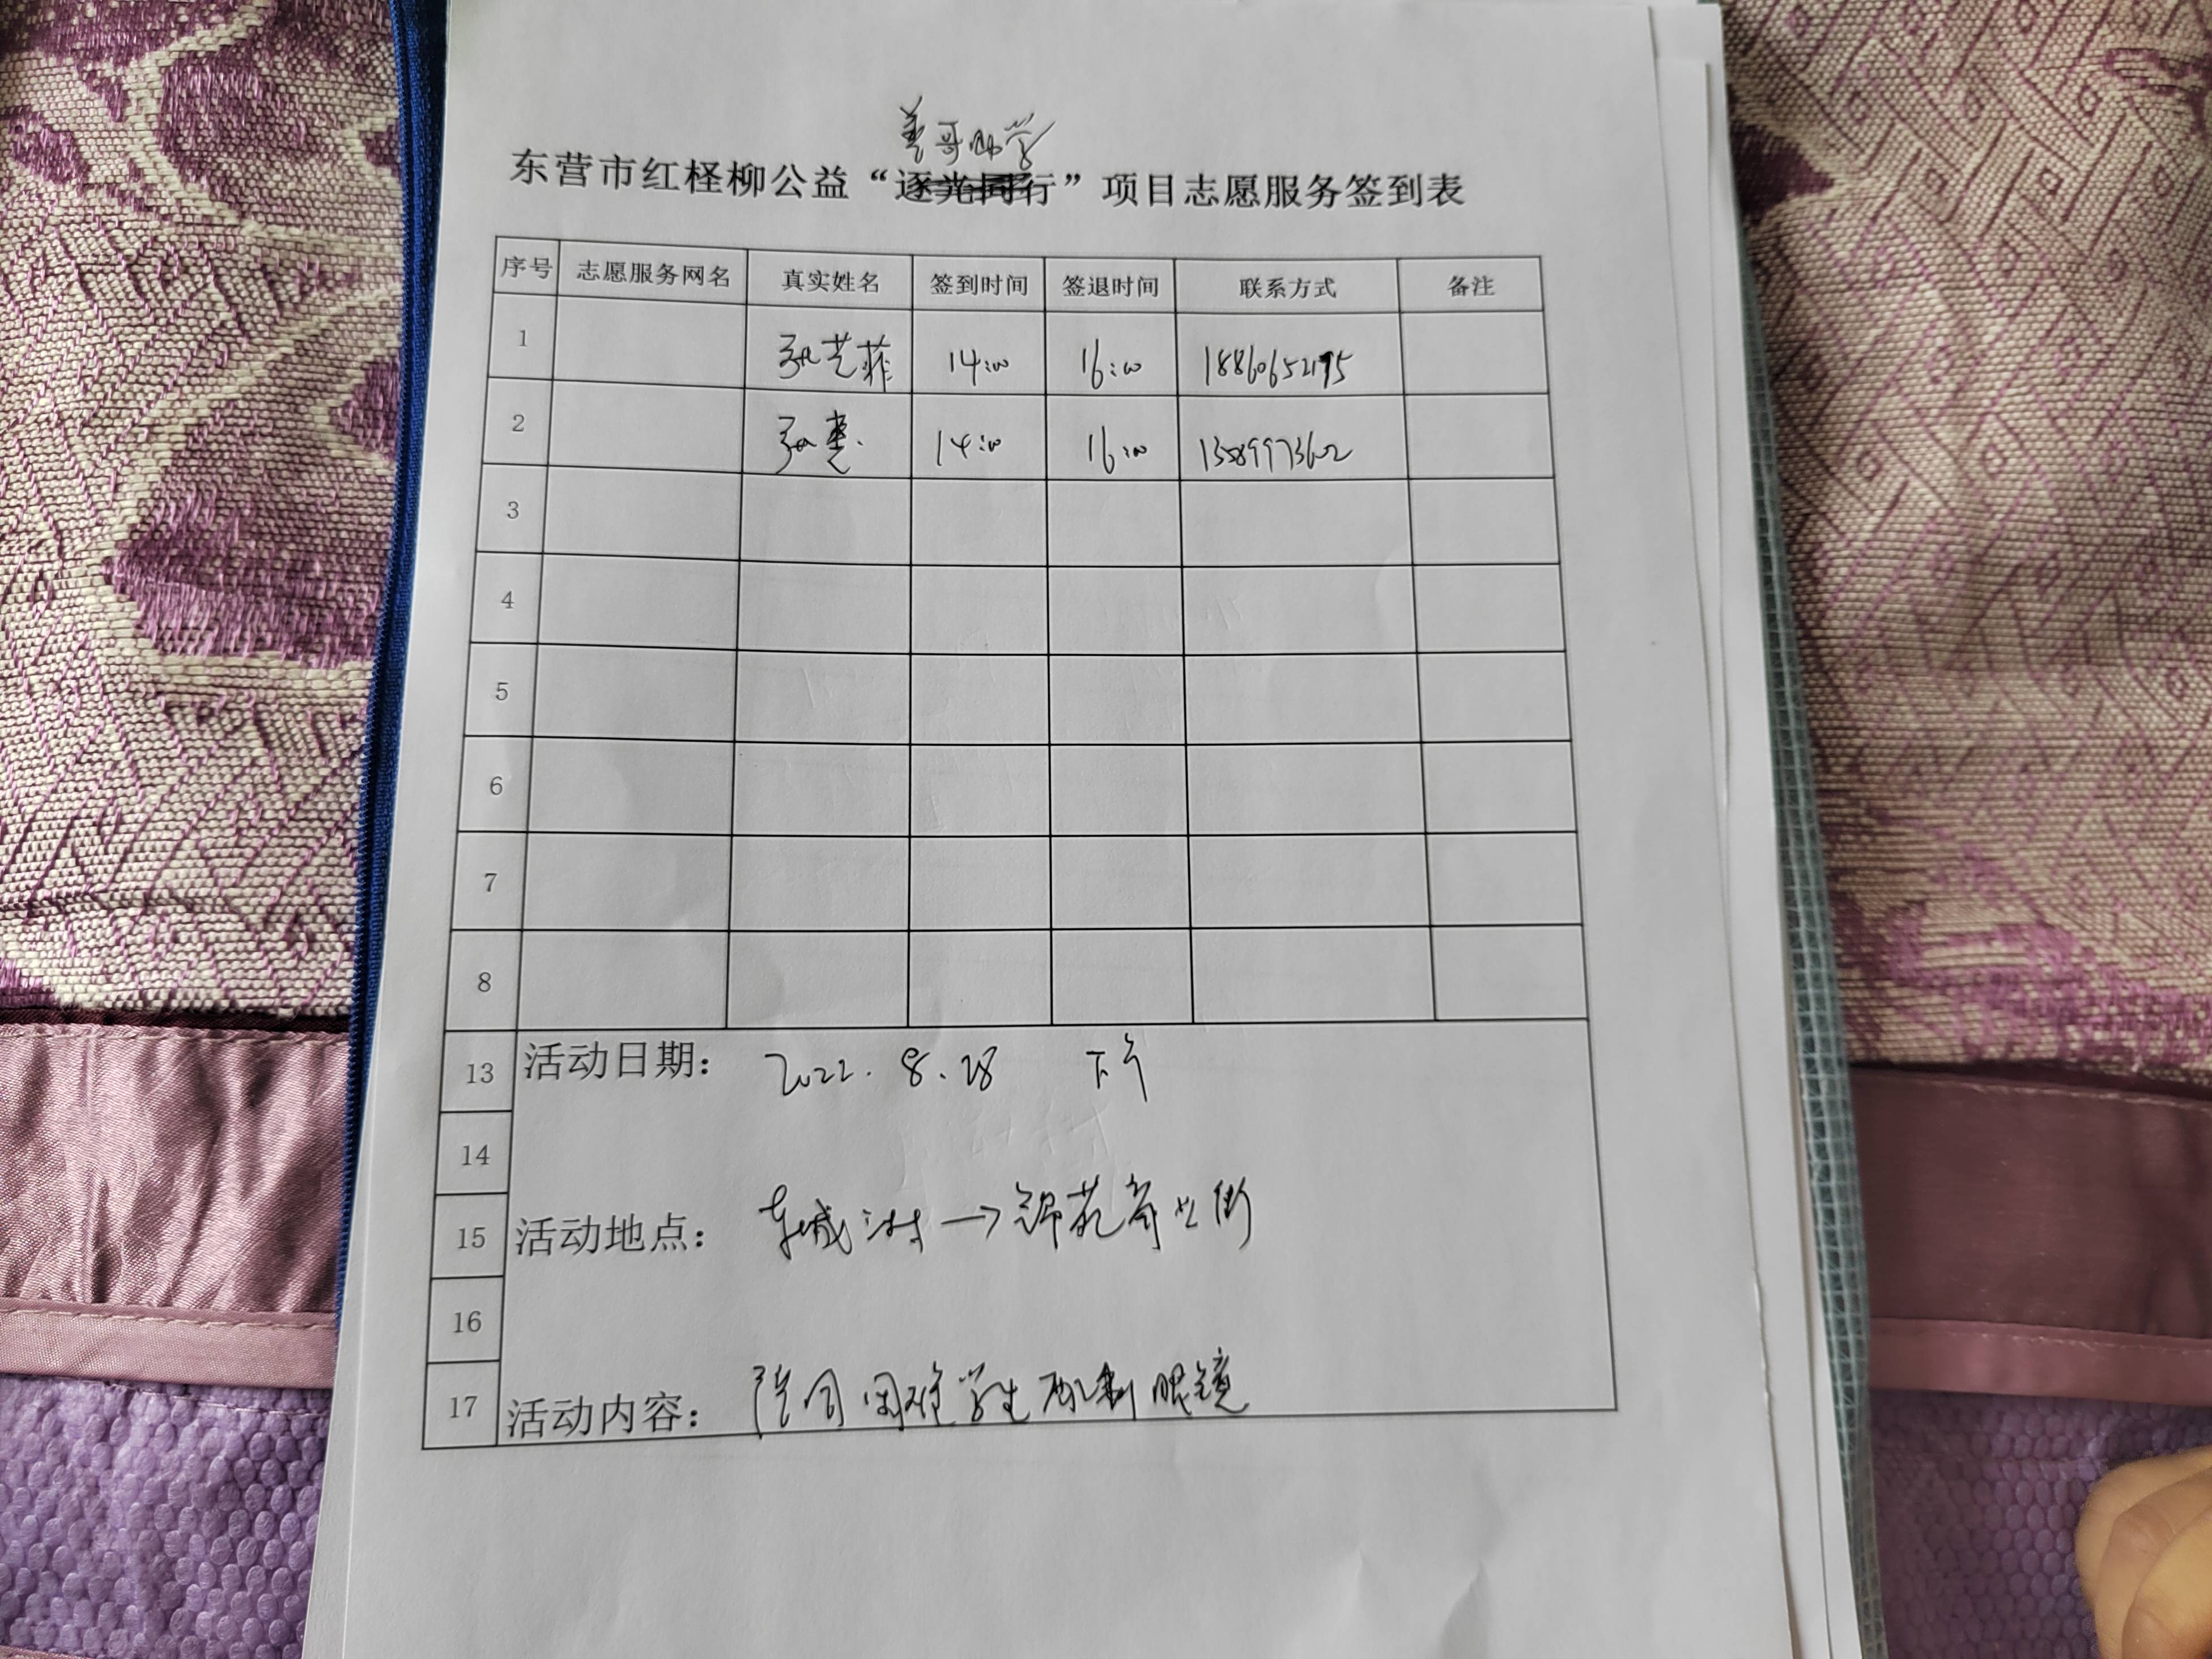 姜哥助学
东营市红柽柳公益“逐光同行”项目志愿服务签到表
序号 志愿服务网名 真实姓名 签到时间 签退时间 联系方式 备注
1 张艺菲 14:00 16:00 18860652195
2 张惠 14:00 16:00 13589973602
3
4
5
6
7
8
13 活动日期： 2022.8.28 下午
14
15 活动地点： 东城 → 锦苑商业街
16
17 活动内容： 陪同困难学生配制眼镜